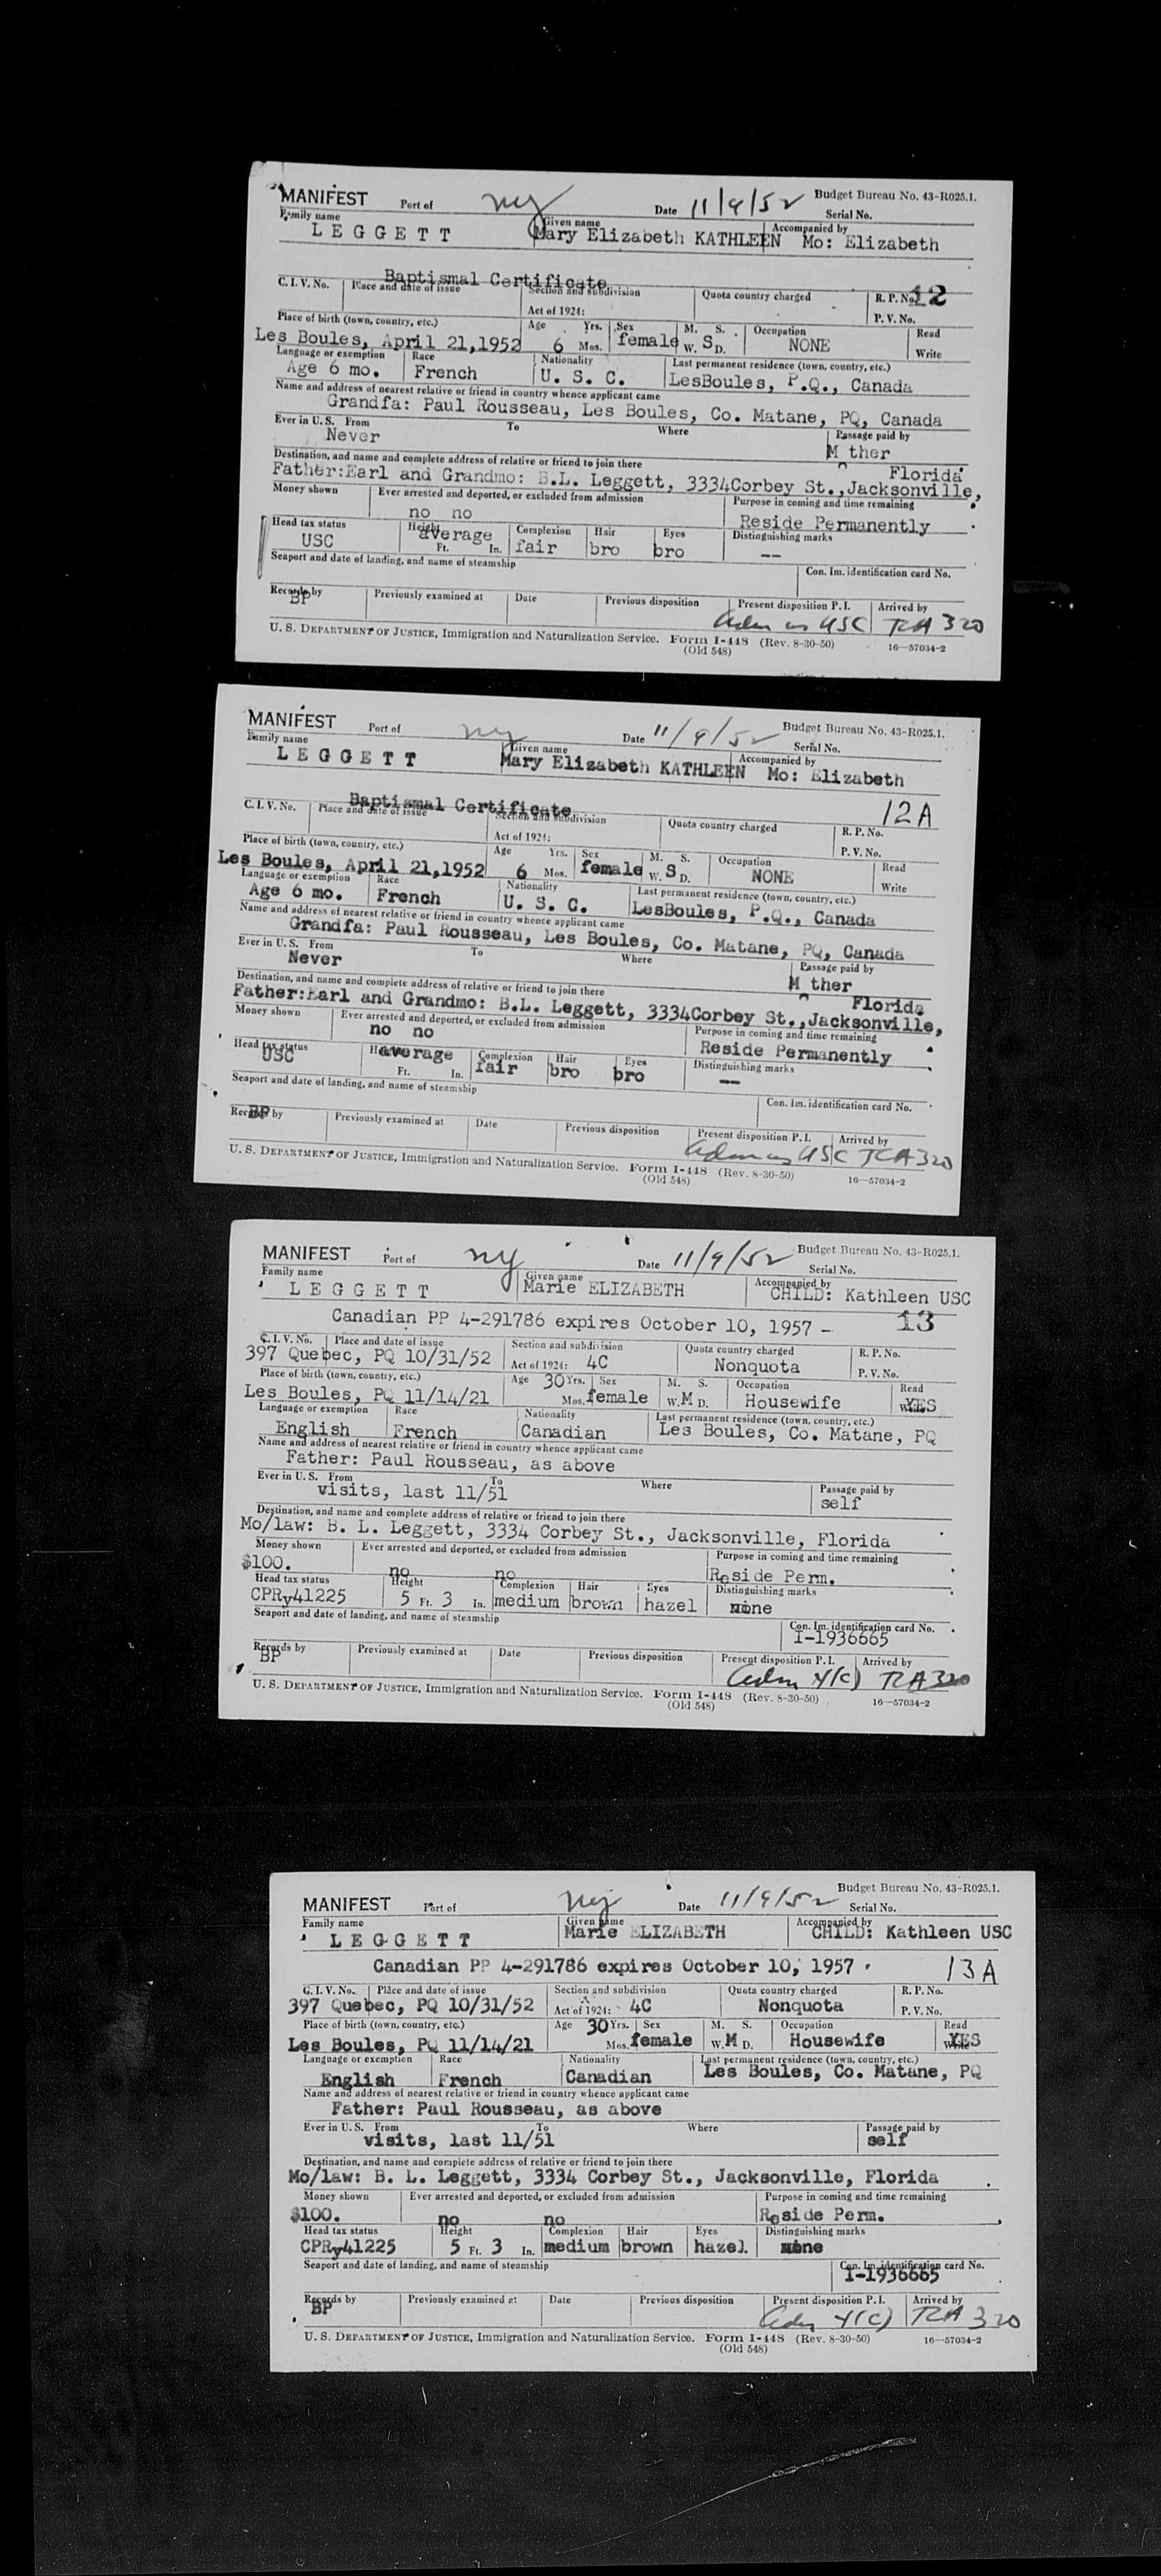 MANIFEST Port of ny Date 11/9/52 Budget Bureau No. 43-R025.1.
Serial No.
Family name Given name Accompanied by
LEGGETT Mary Elizabeth KATHLEEN Mo: Elizabeth
Baptismal Certificate 12
C. I. V. No. Place and date of issue Section and subdivision Quota country charged R. P. No.
Act of 1924: P. V. No.
Place of birth (town, country, etc.) Age Yrs. Sex M. S. Occupation Read
Les Boules, April 21,1952 6 Mos. female W. S D. NONE Write
Language or exemption Race Nationality Last permanent residence (town, country, etc.)
Age 6 mo. French U. S. C. LesBoules, P.Q., Canada
Name and address of nearest relative or friend in country whence applicant came
Grandfa: Paul Rousseau, Les Boules, Co. Matane, PQ, Canada
Ever in U. S. From To Where Passage paid by
Never M ther
Destination, and name and complete address of relative or friend to join there Florida
Father:Earl and Grandmo: B.L. Leggett, 3334Corbey St.,Jacksonville,
Money shown Ever arrested and deported, or excluded from admission Purpose in coming and time remaining
no no Reside Permanently
Head tax status Height Complexion Hair Eyes Distinguishing marks
USC average Ft. In. fair bro bro --
Seaport and date of landing, and name of steamship Con. Im. identification card No.
Records by Previously examined at Date Previous disposition Present disposition P. I. Arrived by
BP Adm as USC TCA 320
U. S. DEPARTMENT OF JUSTICE, Immigration and Naturalization Service. Form I-448 (Rev. 8-30-50) 16—57034-2
(Old 548)
MANIFEST Port of ny Date 11/9/52 Budget Bureau No. 43-R025.1.
Serial No.
Family name Given name Accompanied by
LEGGETT Mary Elizabeth KATHLEEN Mo: Elizabeth
Baptismal Certificate 12A
C. I. V. No. Place and date of issue Section and subdivision Quota country charged R. P. No.
Act of 1924: P. V. No.
Place of birth (town, country, etc.) Age Yrs. Sex M. S. Occupation Read
Les Boules, April 21,1952 6 Mos. female W. S D. NONE Write
Language or exemption Race Nationality Last permanent residence (town, country, etc.)
Age 6 mo. French U. S. C. LesBoules, P.Q., Canada
Name and address of nearest relative or friend in country whence applicant came
Grandfa: Paul Rousseau, Les Boules, Co. Matane, PQ, Canada
Ever in U. S. From To Where Passage paid by
Never M ther
Destination, and name and complete address of relative or friend to join there Florida
Father:Earl and Grandmo: B.L. Leggett, 3334Corbey St.,Jacksonville,
Money shown Ever arrested and deported, or excluded from admission Purpose in coming and time remaining
no no Reside Permanently
Head tax status Height Complexion Hair Eyes Distinguishing marks
USC average Ft. In. fair bro bro --
Seaport and date of landing, and name of steamship Con. Im. identification card No.
Records by Previously examined at Date Previous disposition Present disposition P. I. Arrived by
BP Adm as USC TCA 320
U. S. DEPARTMENT OF JUSTICE, Immigration and Naturalization Service. Form I-448 (Rev. 8-30-50) 16—57034-2
(Old 548)
MANIFEST Port of ny Date 11/9/52 Budget Bureau No. 43-R025.1.
Serial No.
Family name Given name Accompanied by
LEGGETT Marie ELIZABETH CHILD: Kathleen USC
Canadian PP 4-291786 expires October 10, 1957 - 13
C. I. V. No. Place and date of issue Section and subdivision Quota country charged R. P. No.
397 Quebec, PQ 10/31/52 Act of 1924: 4C Nonquota P. V. No.
Place of birth (town, country, etc.) Age 30 Yrs. Sex M. S. Occupation Read
Les Boules, PQ 11/14/21 Mos. female W. M D. Housewife Write YES
Language or exemption Race Nationality Last permanent residence (town, country, etc.)
English French Canadian Les Boules, Co. Matane, PQ
Name and address of nearest relative or friend in country whence applicant came
Father: Paul Rousseau, as above
Ever in U. S. From To Where Passage paid by
visits, last 11/51 self
Destination, and name and complete address of relative or friend to join there
Mo/law: B. L. Leggett, 3334 Corbey St., Jacksonville, Florida
Money shown Ever arrested and deported, or excluded from admission Purpose in coming and time remaining
$100. no no Reside Perm.
Head tax status Height Complexion Hair Eyes Distinguishing marks
CPRy41225 5 Ft. 3 In. medium brown hazel none
Seaport and date of landing, and name of steamship Con. Im. identification card No.
I-1936665
Records by Previously examined at Date Previous disposition Present disposition P. I. Arrived by
BP Adm 4(c) TCA 320
U. S. DEPARTMENT OF JUSTICE, Immigration and Naturalization Service. Form I-448 (Rev. 8-30-50) 16—57034-2
(Old 548)
MANIFEST Port of ny Date 11/9/52 Budget Bureau No. 43-R025.1.
Serial No.
Family name Given name Accompanied by
LEGGETT Marie ELIZABETH CHILD: Kathleen USC
Canadian PP 4-291786 expires October 10, 1957 . 13A
C. I. V. No. Place and date of issue Section and subdivision Quota country charged R. P. No.
397 Quebec, PQ 10/31/52 Act of 1924: 4C Nonquota P. V. No.
Place of birth (town, country, etc.) Age 30 Yrs. Sex M. S. Occupation Read
Les Boules, PQ 11/14/21 Mos. female W. M D. Housewife Write YES
Language or exemption Race Nationality Last permanent residence (town, country, etc.)
English French Canadian Les Boules, Co. Matane, PQ
Name and address of nearest relative or friend in country whence applicant came
Father: Paul Rousseau, as above
Ever in U. S. From To Where Passage paid by
visits, last 11/51 self
Destination, and name and complete address of relative or friend to join there
Mo/law: B. L. Leggett, 3334 Corbey St., Jacksonville, Florida
Money shown Ever arrested and deported, or excluded from admission Purpose in coming and time remaining
$100. no no Reside Perm.
Head tax status Height Complexion Hair Eyes Distinguishing marks
CPRy41225 5 Ft. 3 In. medium brown hazel. none
Seaport and date of landing, and name of steamship Con. Im. identification card No.
I-1936665
Records by Previously examined at Date Previous disposition Present disposition P. I. Arrived by
BP Adm 4(c) TCA 320
U. S. DEPARTMENT OF JUSTICE, Immigration and Naturalization Service. Form I-448 (Rev. 8-30-50) 16—57034-2
(Old 548)